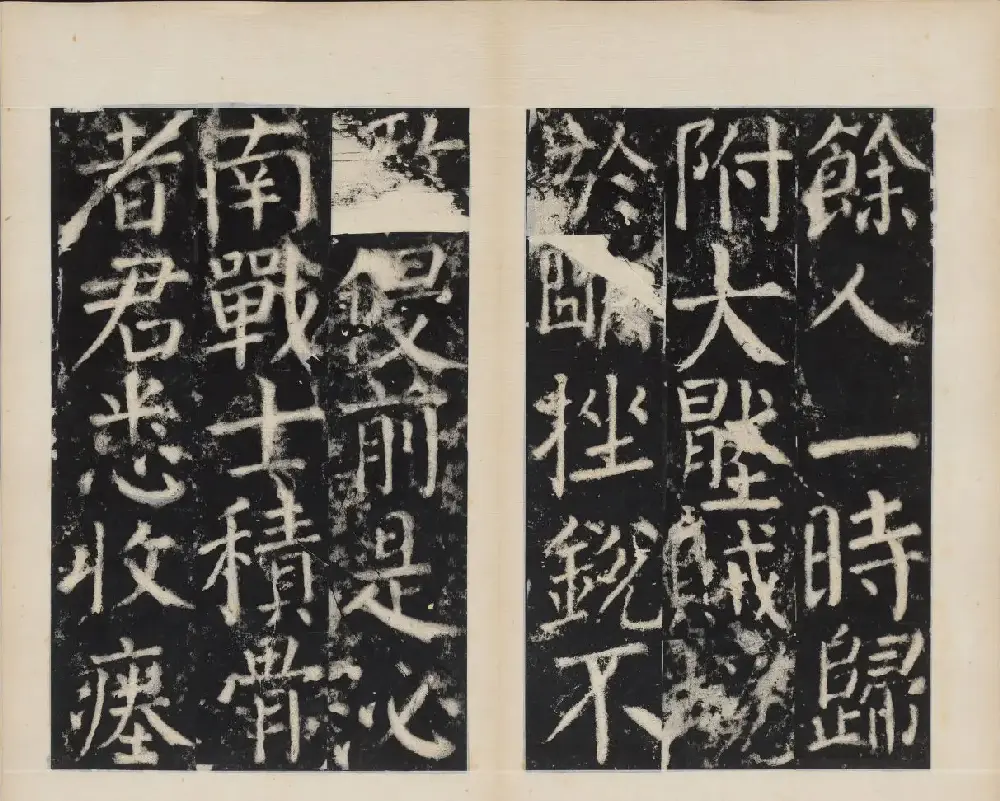 餘人一時歸
附大壓賊
於明挫銳不
侵前是泌
南戰士積骨
者君悉收瘞